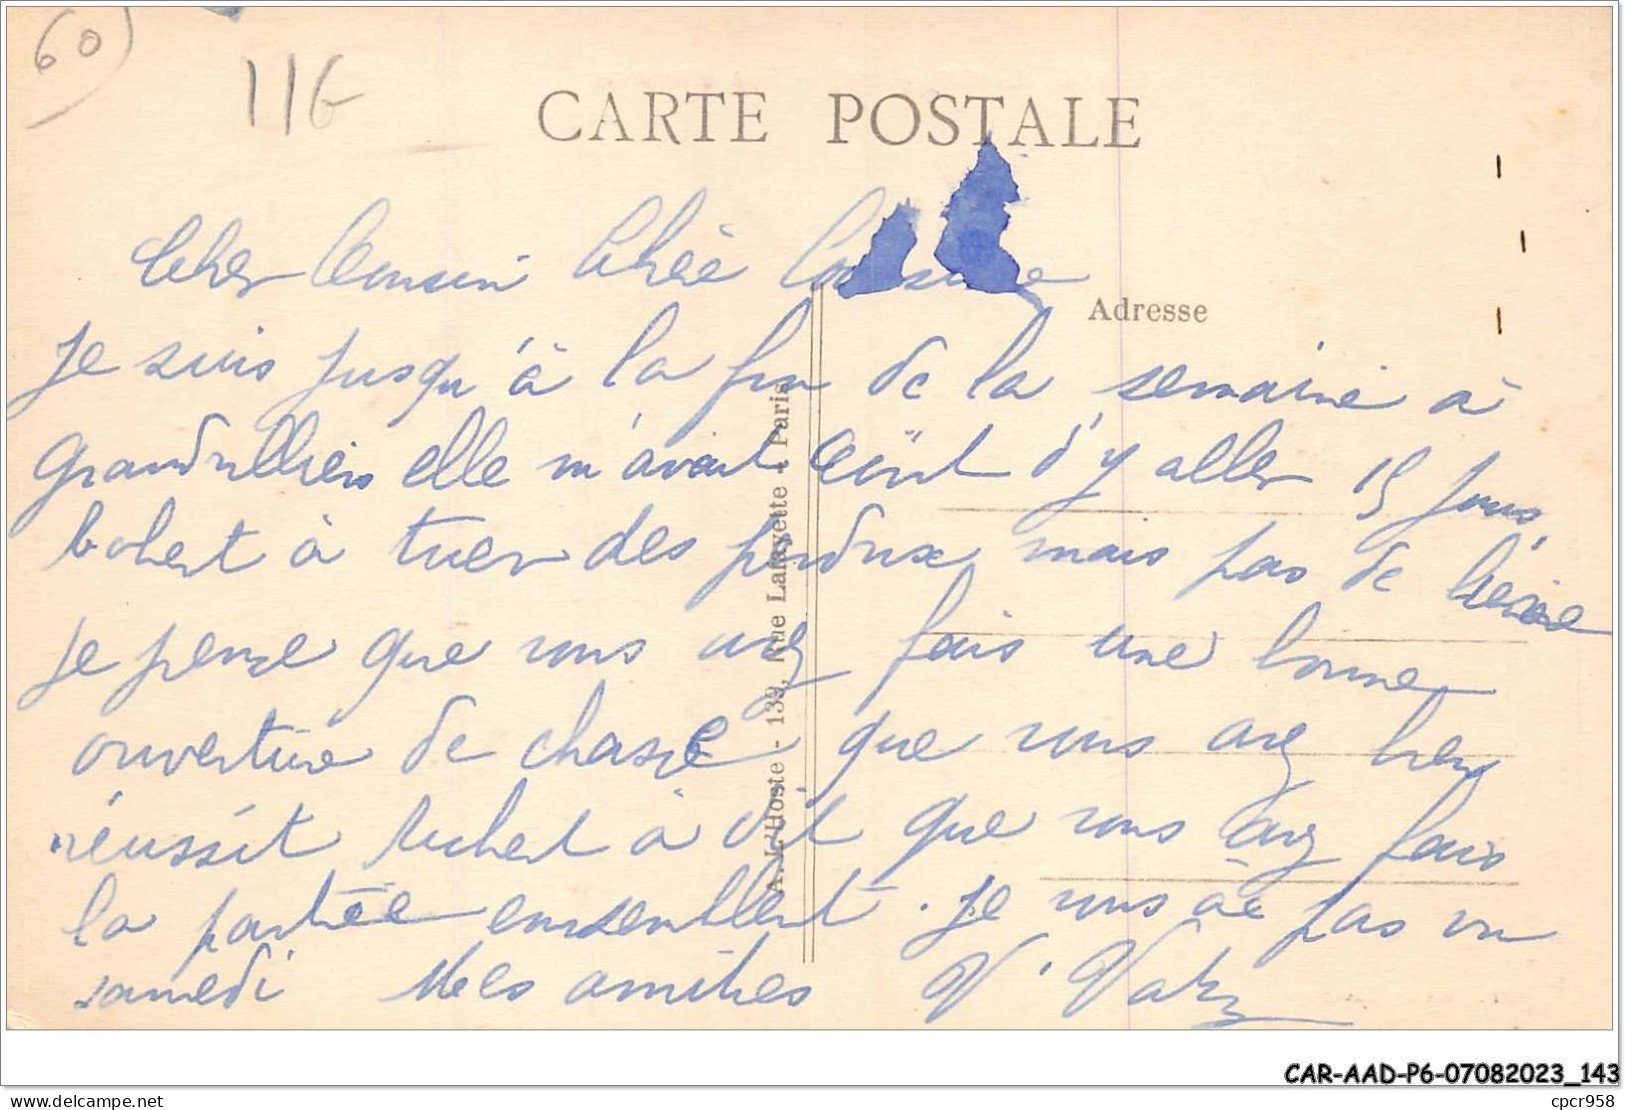 60
116
CARTE POSTALE
Cher Cousin Chèe Cousine
Adresse
je suis jusqu'à la fin de la semaine à
Grandvilliers elle m'avait écrit d'y aller 15 jours
à tuer des perdrix mais pas de lièvre
je pense que vous avez fais une bonne
ouverture de chasse que vous avez bien
réussit à dit que vous avez fais
la partie ensemblent. je vous ai pas vu
samedi Mes amitiés V.
A. L'Hoste - 139, Rue Lafayette - Paris
CAR-AAD-P6-07082023_143
delcampe.net
cpcr958